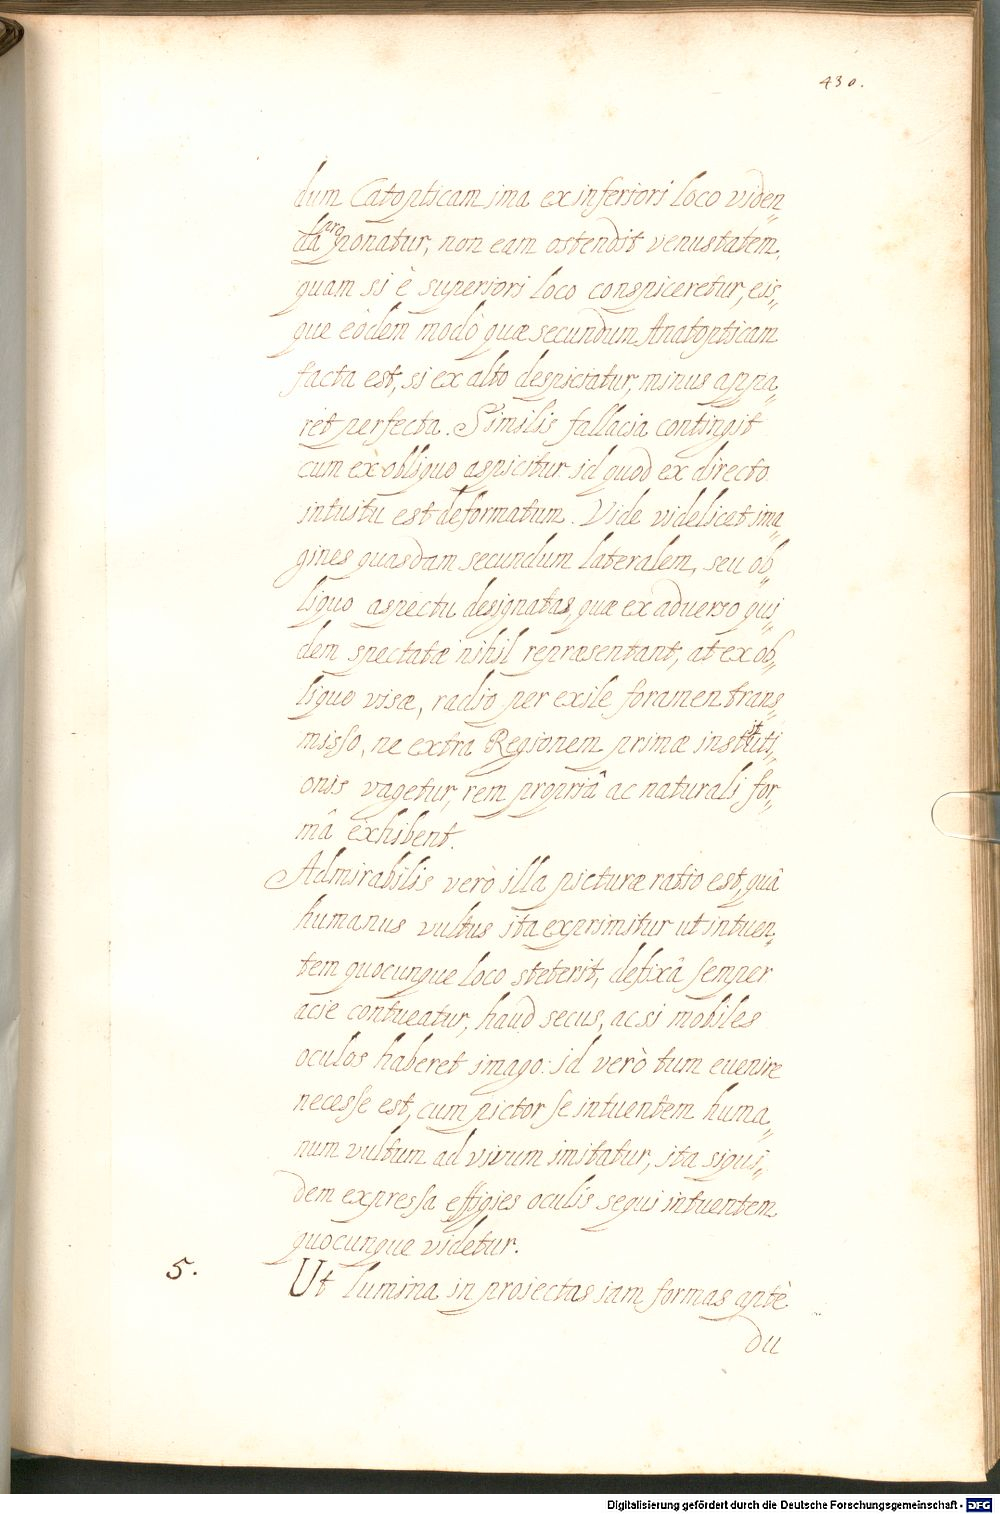 430.
dum Catopticam ima ex inferiori loco viden„
da proponatur, non eam ostendit venustatem,
quam si è superiori loco conspiceretur, eis„
que eôdem modò quæ secundum Anatopticam
facta est, si ex alto despiciatur, minus appa„
ret perfecta. Similis fallacia contingit
cum ex obliquo aspicitur id quod ex directo
intuitu est deformatum. Vide videlicet ima„
gines quasdam secundum lateralem, seu ob„
liquo aspectu designatas, quæ ex adverso qui„
dem spectatæ nihil repræsentant, at ex ob„
liquo visæ, radio per exile foramen trans„
misso, ne extra Regionem primæ institutı„
onis vagetur, rem propriâ ac naturali for„
mâ exhibent.
Admirabilis verò illa picturæ ratio est, quâ
humanus vultus ita exprimitur ut intuen„
tem quocunque loco steterit, defixâ semper
acie contueatur, haud secus, ac si mobiles
oculos haberet imago: id verò tum euenire
necesse est, cum pictor se intuentem huma„
num vultum ad vivum imitatur, ita siqui„
dem expressa effigies oculis sequi intuentem
quocunque videtur.
5. Ut lumina in proiectas iam formas aptè
du
Digitalisierung gefördert durch die Deutsche Forschungsgemeinschaft - DFG